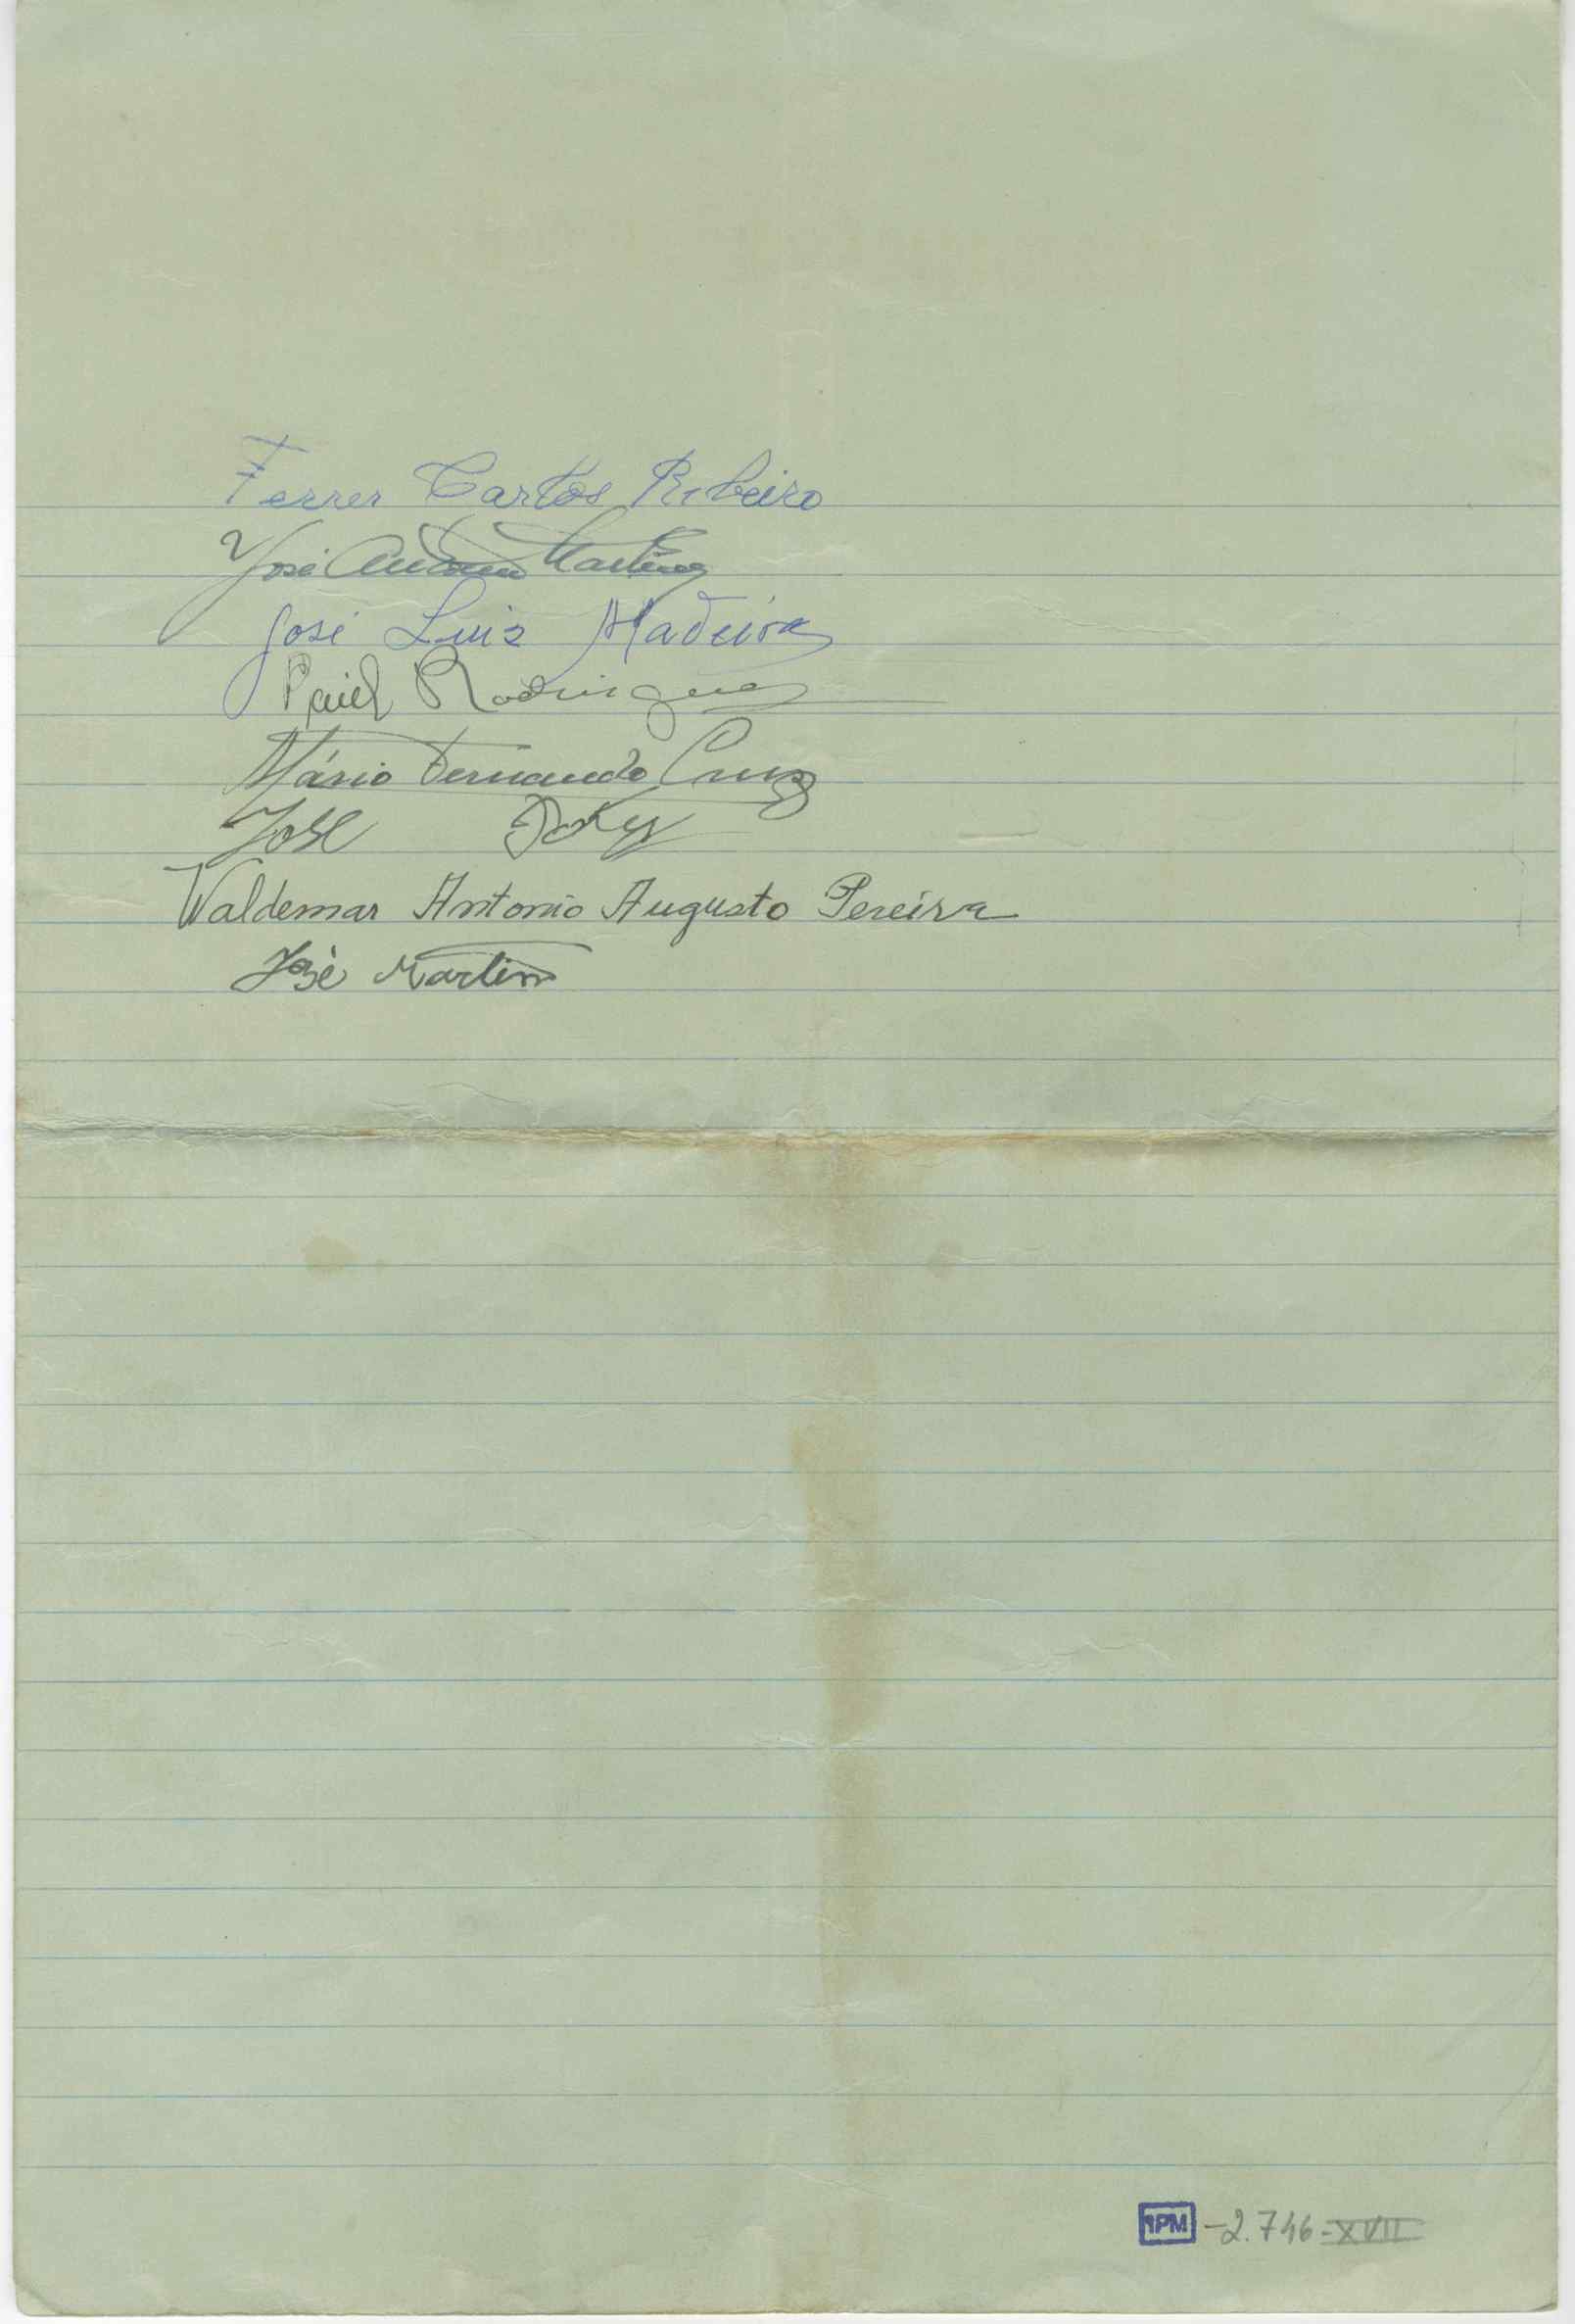 Ferrer Carlos Ribeiro
José António Martins
José Luis Madeira
Raúl Rodrigues
Mário Fernando Cruz
José
Waldemar Antonio Augusto Pereira
José Martins
1PM -2.746-XVII